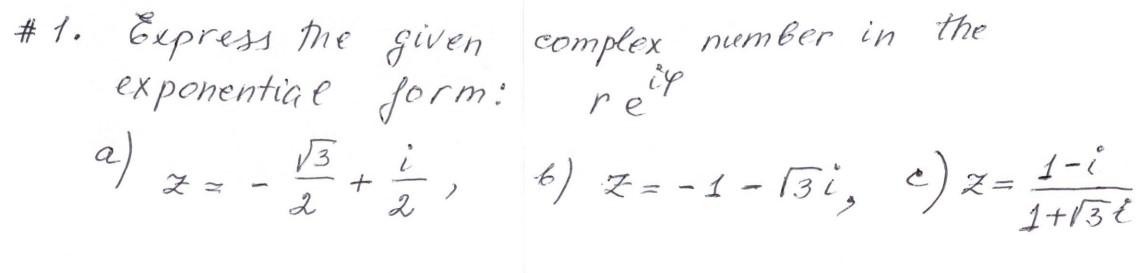 # 1. Express the given complex number in the
exponential form: r e^{iφ}
a) z = - √3/2 + i/2 , b) z = -1 - √3 i, c) z = (1-i)/(1+√3 i)